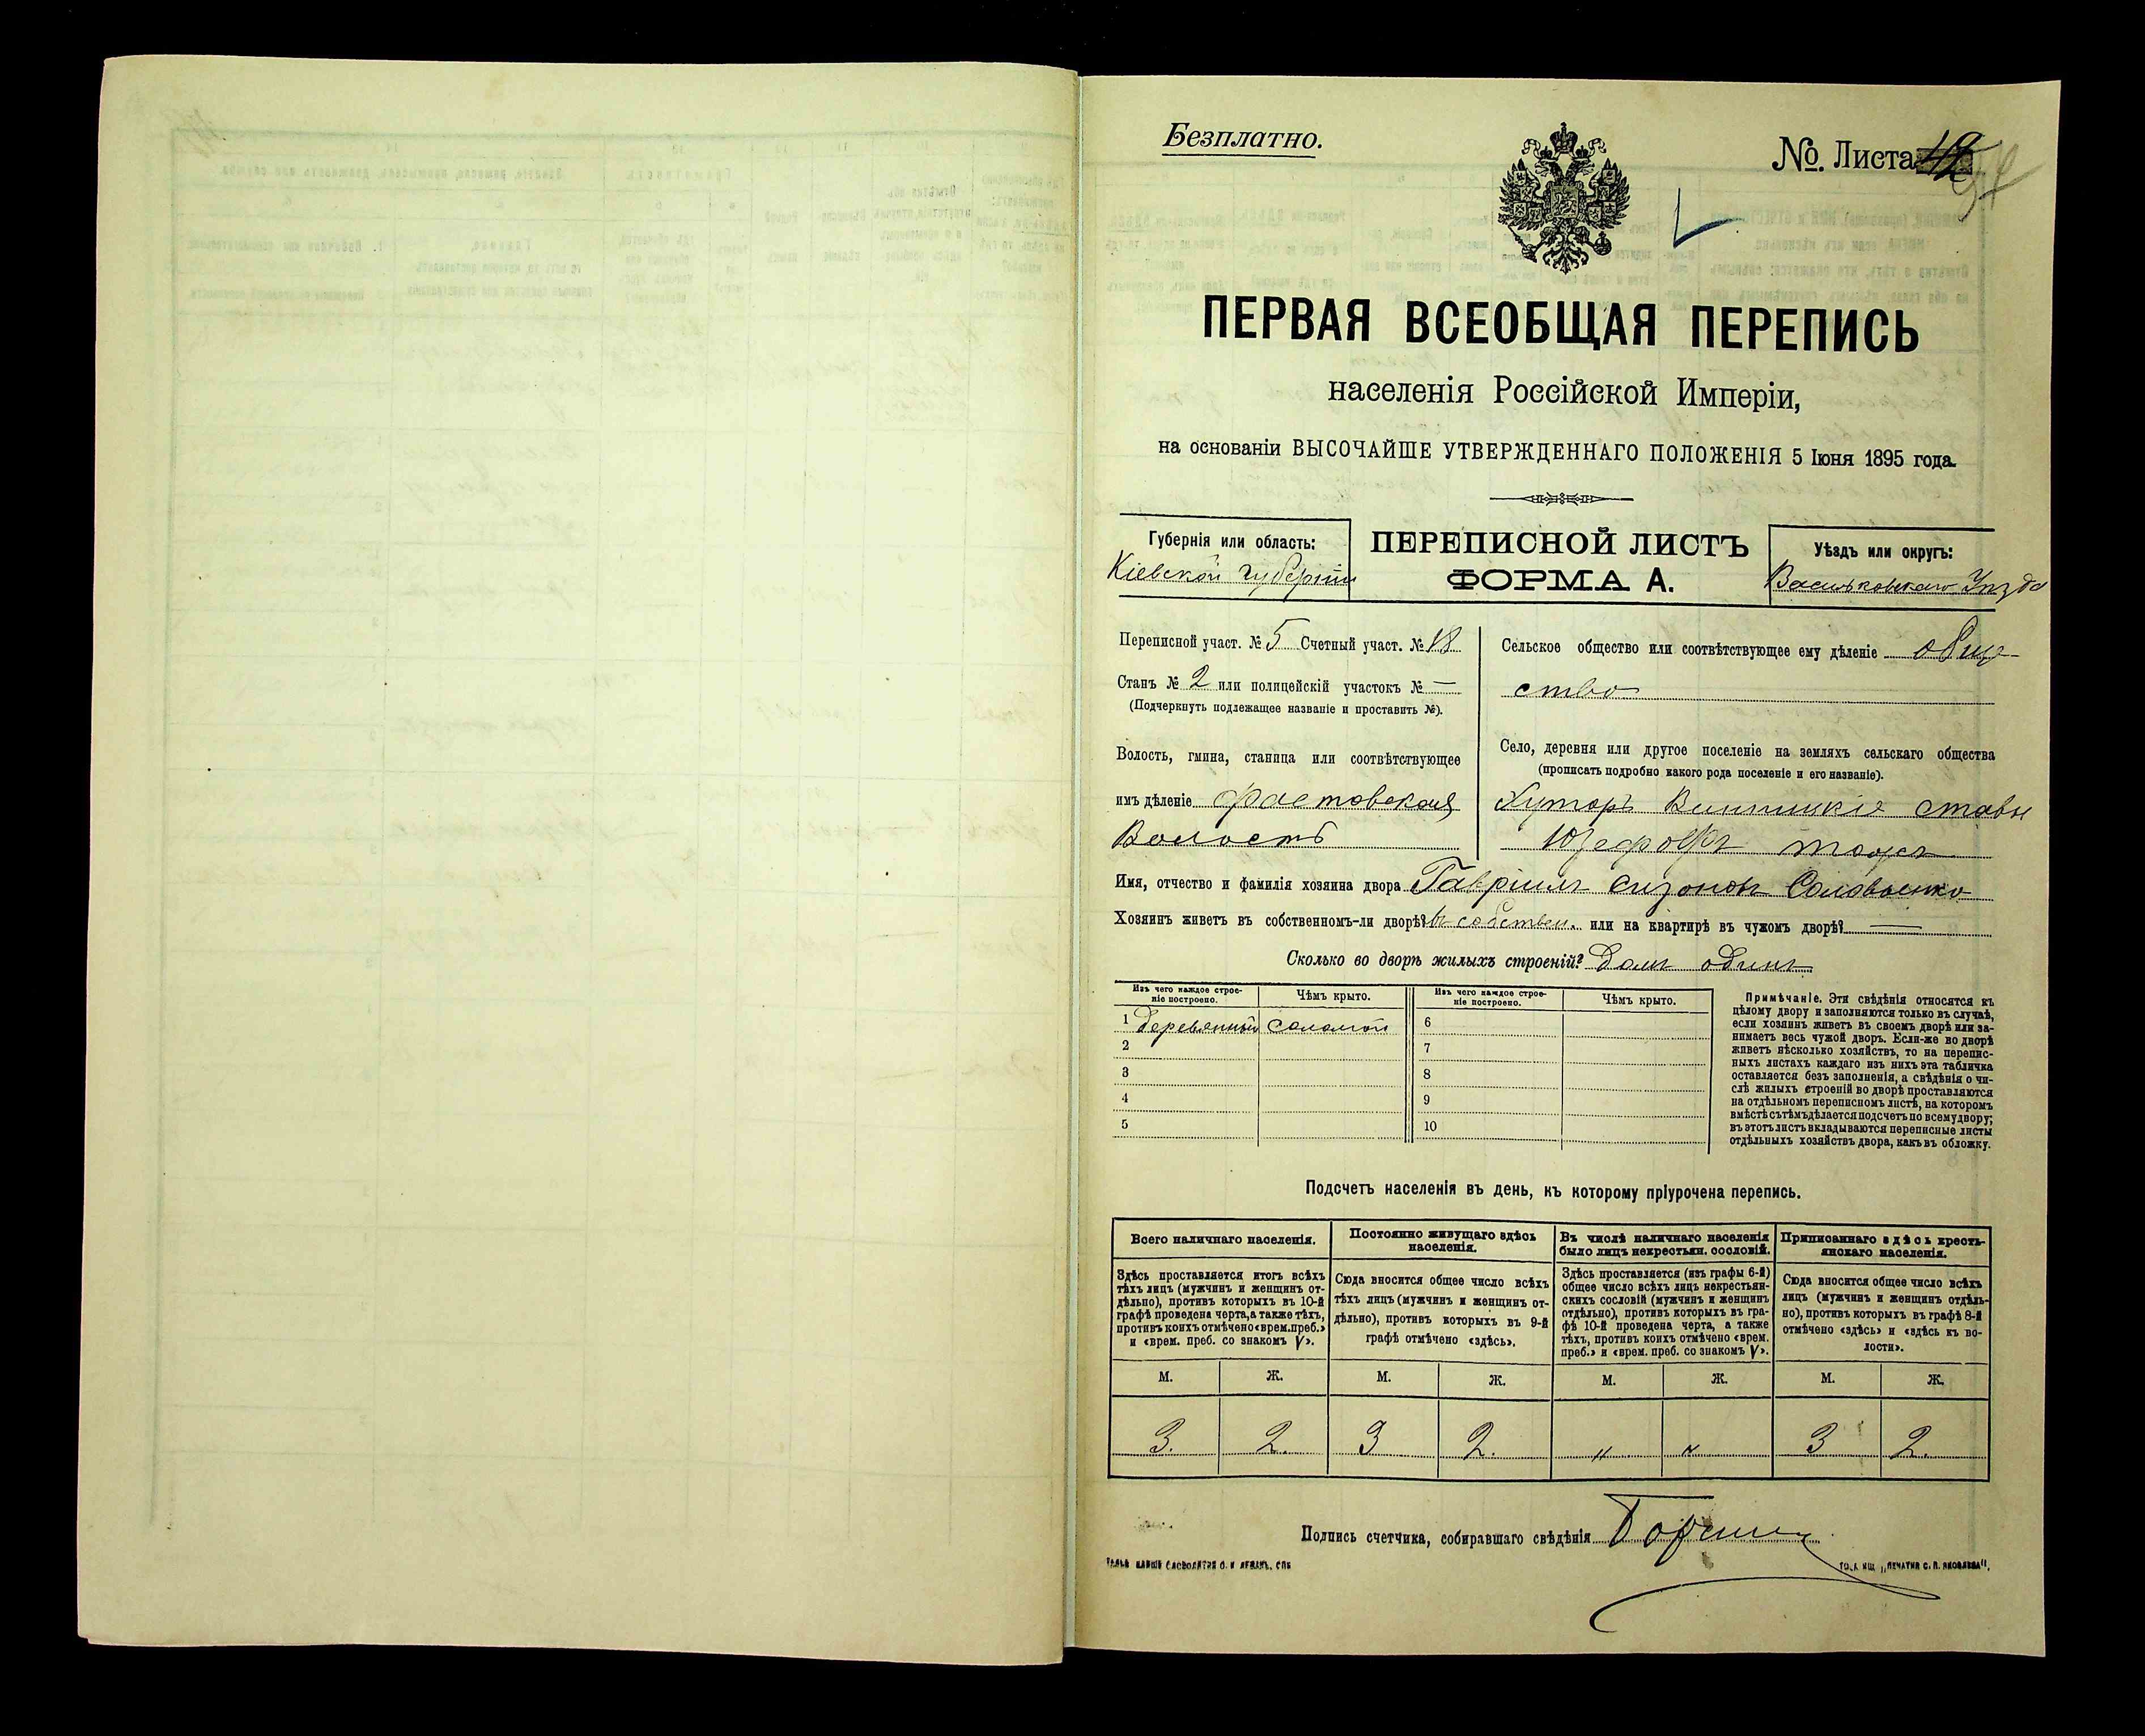 Безплатно.
№. Листа
ПЕРВАЯ ВСЕОБЩАЯ ПЕРЕПИСЬ
населенія Россійской Имперіи,
на основаніи ВЫСОЧАЙШЕ УТВЕРЖДЕННАГО ПОЛОЖЕНІЯ 5 Іюня 1895 года.
Губернія или область:
Кіевской губерніи
ПЕРЕПИСНОЙ ЛИСТЪ
ФОРМА А.
Уѣздъ или округъ:
Васильковскаго Уѣзда
Переписной участ. № 5 Счетный участ. № 18
Станъ № 2 или полицейскій участокъ № —
(Подчеркнуть подлежащее названіе и проставить №).
Волость, гмина, станица или соотвѣтствующее
имъ дѣленіе Фастовская
Волость
Сельское общество или соотвѣтствующее ему дѣленіе обще-
ство
Село, деревня или другое поселеніе на земляхъ сельскаго общества
(прописать подробно какого рода поселеніе и его названіе).
Хуторъ Винницкіе ставы
тожъ
Имя, отчество и фамилія хозяина двора Гавріилъ Соловьенко
Хозяинъ живетъ въ собственномъ-ли дворѣ? въ собствен. или на квартирѣ въ чужомъ дворѣ? —
Сколько во дворѣ жилыхъ строеній? Домъ одинъ
Изъ чего каждое строе-
ніе построено.
Чѣмъ крыто.
Изъ чего каждое строе-
ніе построено.
Чѣмъ крыто.
1 деревянный соломой 6
2 7
3 8
4 9
5 10
Примѣчаніе. Эти свѣдѣнія относятся къ
цѣлому двору и заполняются только въ случаѣ,
если хозяинъ живетъ въ своемъ дворѣ или за-
нимаетъ весь чужой дворъ. Если-же во дворѣ
живетъ нѣсколько хозяйствъ, то на перепис-
ныхъ листахъ каждаго изъ нихъ эта табличка
оставляется безъ заполненія, а свѣдѣнія о чи-
слѣ жилыхъ строеній во дворѣ проставляются
на отдѣльномъ переписномъ листѣ, на которомъ
вмѣстѣ съ тѣмъ дѣлается подсчетъ по всему двору;
въ этотъ листъ вкладываются переписные листы
отдѣльныхъ хозяйствъ двора, какъ въ обложку.
Подсчетъ населенія въ день, къ которому пріурочена перепись.
Всего наличнаго населенія.
Здѣсь проставляется итогъ всѣхъ
тѣхъ лицъ (мужчинъ и женщинъ от-
дѣльно), противъ которыхъ въ 10-й
графѣ проведена черта, а также тѣхъ,
противъ коихъ отмѣчено «врем. преб.»
и «врем. преб. со знакомъ V».
Постоянно живущаго здѣсь
населенія.
Сюда вносится общее число всѣхъ
тѣхъ лицъ (мужчинъ и женщинъ от-
дѣльно), противъ которыхъ въ 9-й
графѣ отмѣчено «здѣсь».
Въ числѣ наличнаго населенія
было лицъ некрестьян. сословій.
Здѣсь проставляется (изъ графы 6-й)
общее число всѣхъ лицъ некрестьян-
скихъ сословій (мужчинъ и женщинъ
отдѣльно), противъ которыхъ въ гра-
фѣ 10-й проведена черта, а также
тѣхъ, противъ коихъ отмѣчено «врем.
преб.» и «врем. преб. со знакомъ V».
Приписаннаго здѣсь кресть-
янскаго населенія.
Сюда вносится общее число всѣхъ
лицъ (мужчинъ и женщинъ отдѣль-
но), противъ которыхъ въ графѣ 8-й
отмѣчено «здѣсь» и «здѣсь къ во-
лости».
М. Ж. М. Ж. М. Ж. М. Ж.
3. 2. 3 2. " " 3 2.
Подпись счетчика, собиравшаго свѣдѣнія